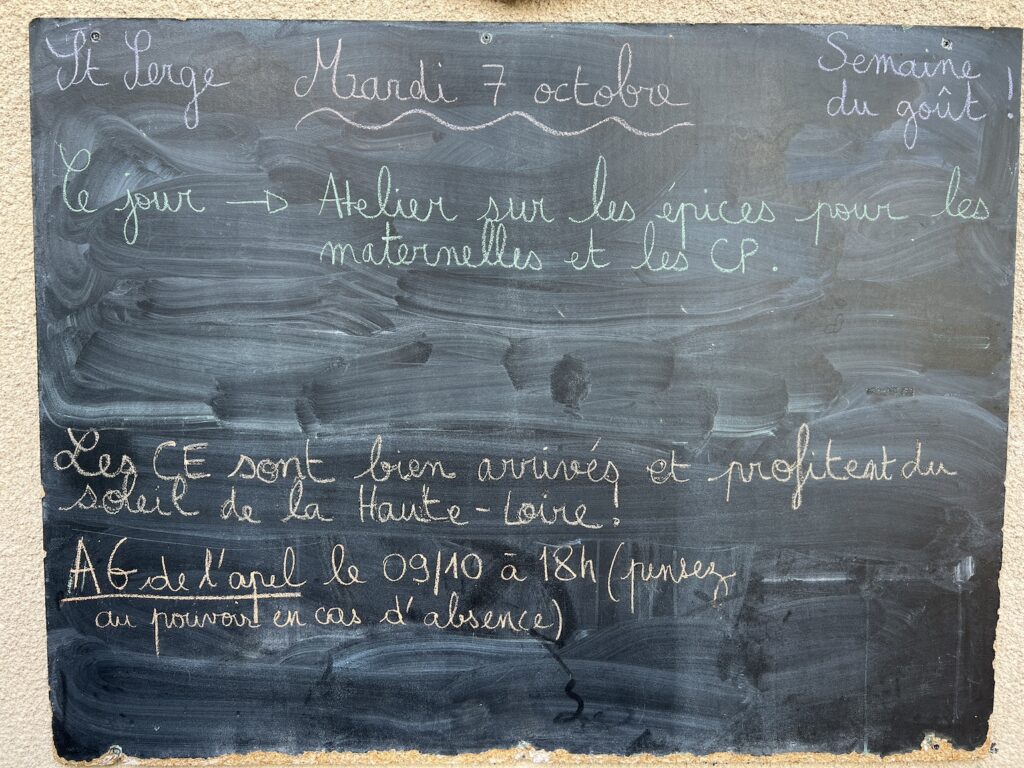 St Serge
Mardi 7 octobre
Semaine
du goût !
Ce jour → Atelier sur les épices pour les
maternelles et les CP.
Les CE sont bien arrivés et profitent du
soleil de la Haute-Loire!
AG de l'apel le 09/10 à 18h (pensez
au pouvoir en cas d'absence)